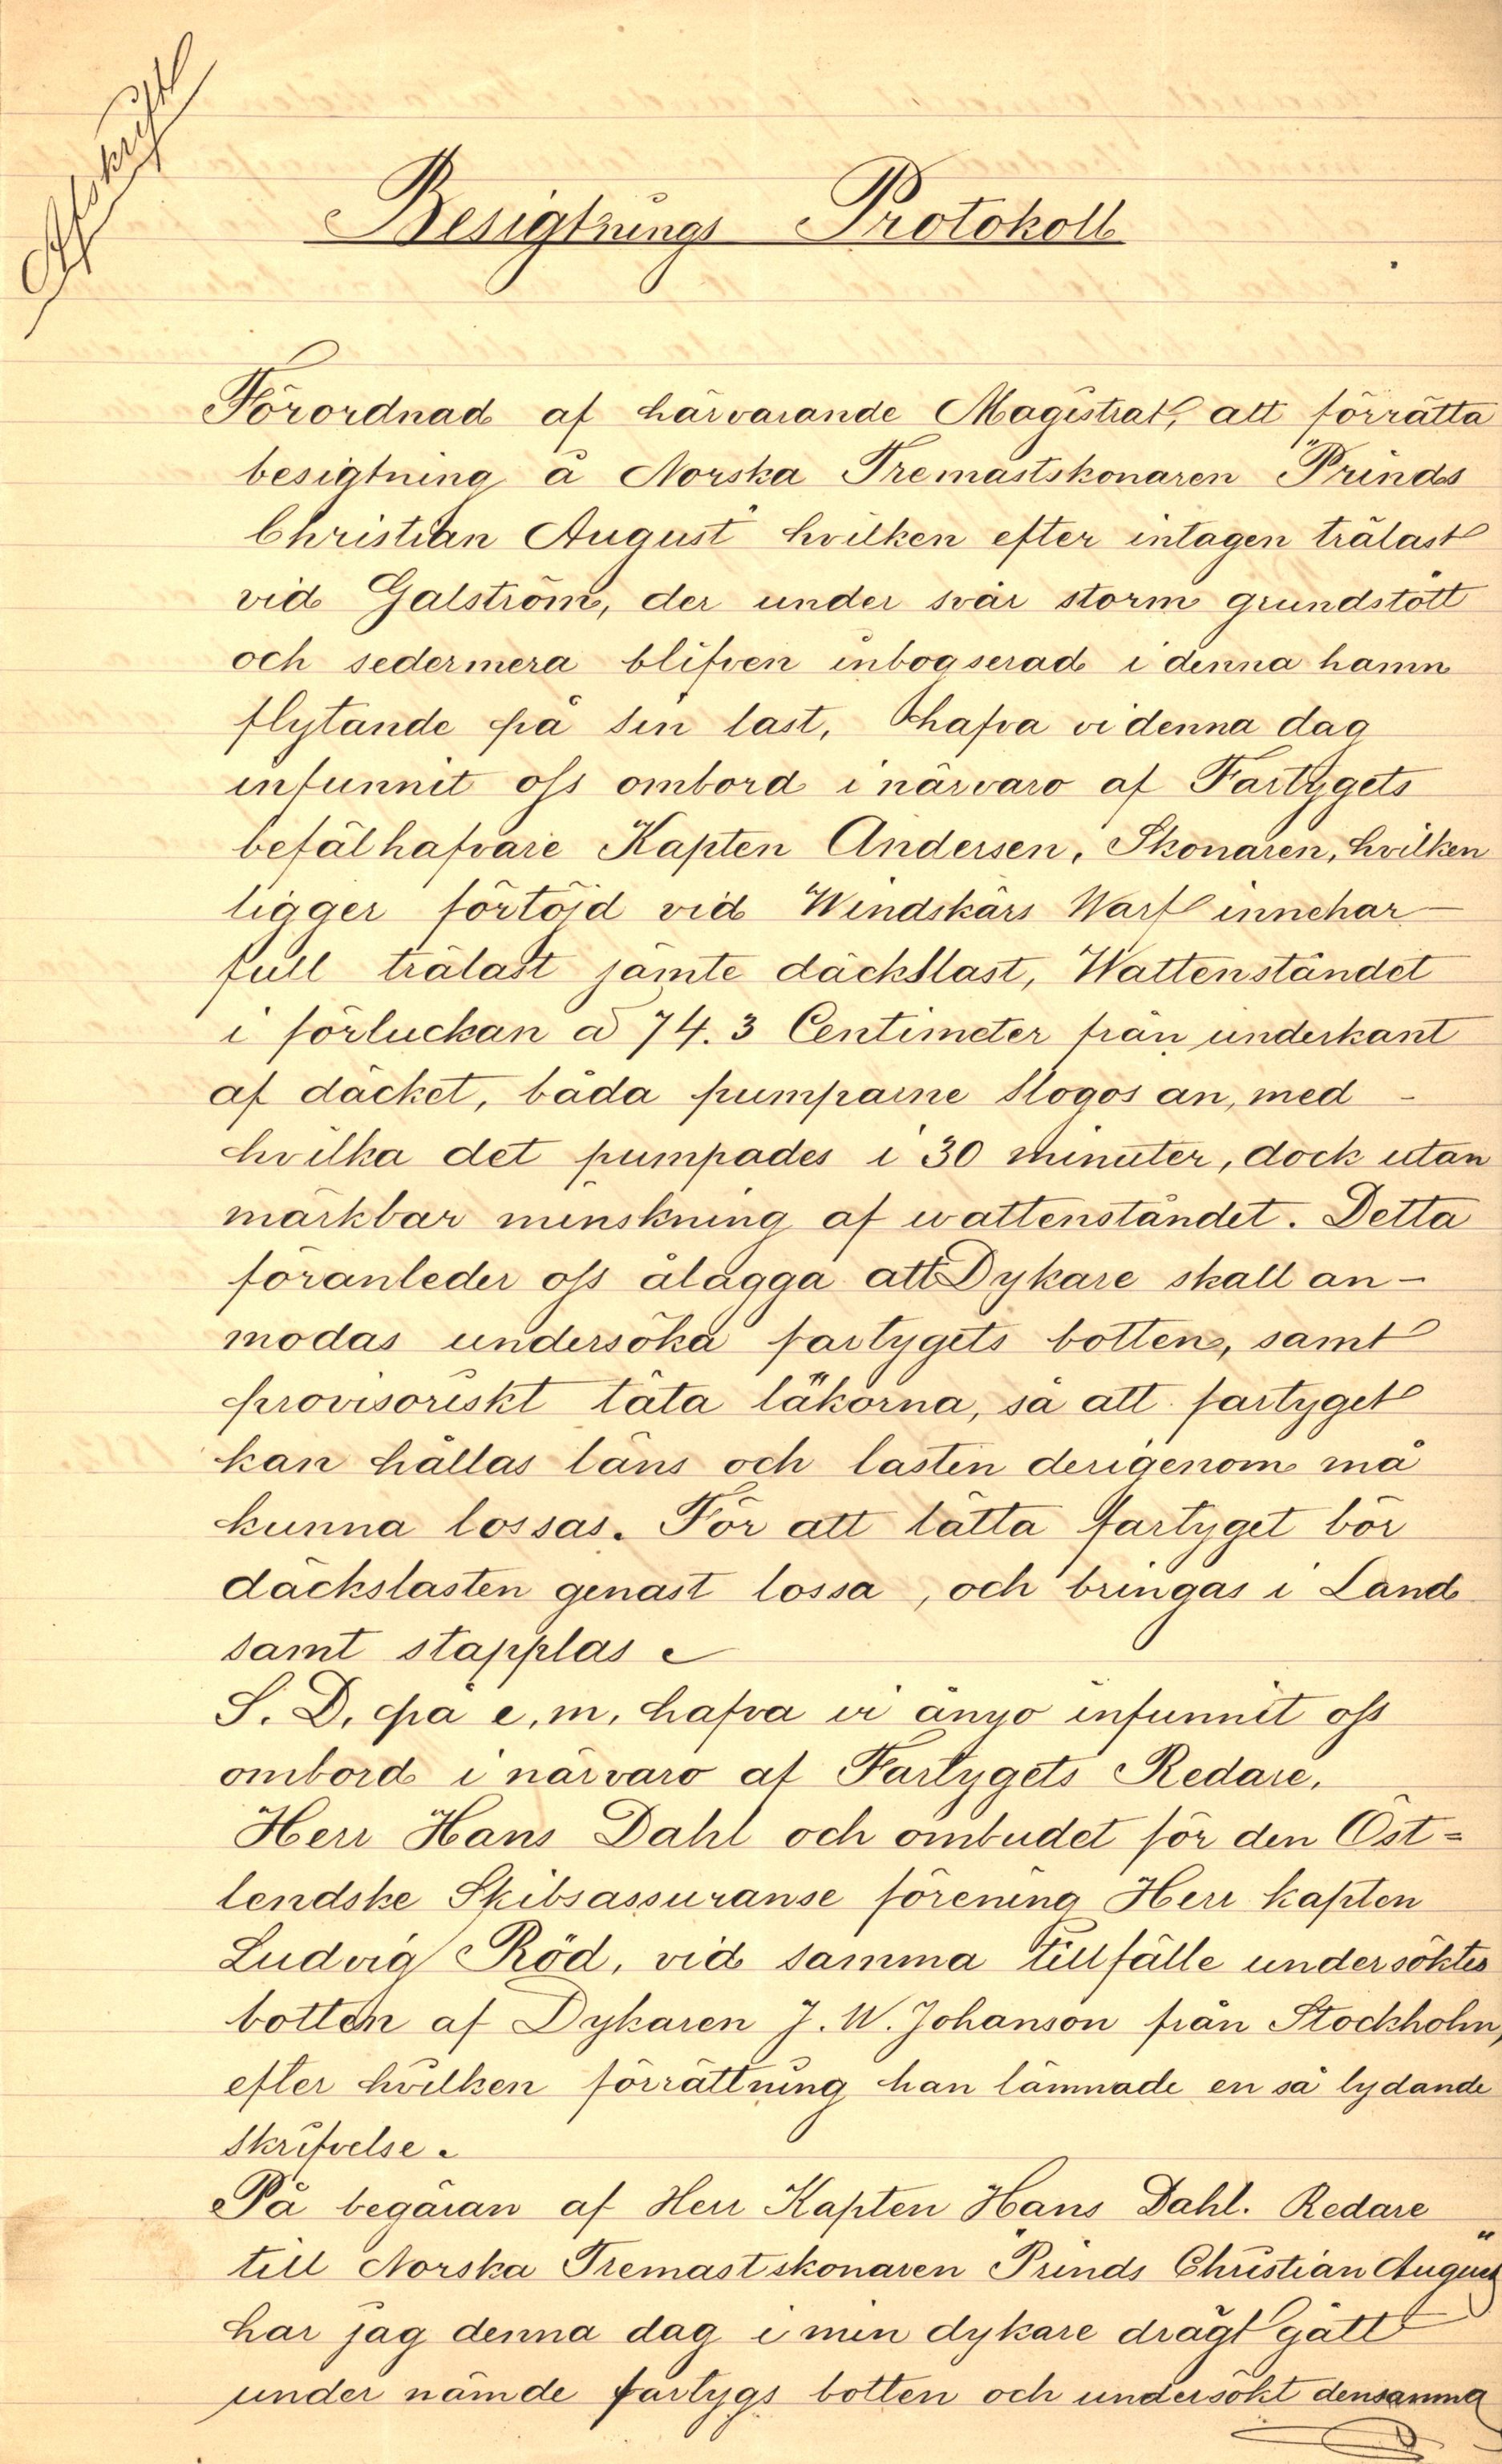 Afskrift
Besigtnings Protokoll
Förordnad af härvarande Magistrat, att förrätta
besigtning å Norska Tremastskonaren "Prinds
Christian August" hvilken efter intagen trälast
vid Galström, der under svår storm grundstött
och sedermera blifven inbogserad i denna hamn
flytande på sin last, hafva vi denna dag
infunnit oss ombord i närvaro af Fartygets
befälhafvare Kapten Andersen, Skonaren, hvilken
ligger förtöjd vid Windskärs Warf innehar
full trälast jämte däckslast, Wattenståndet
i förluckan a 74.3 Centimeter från underkant
af däcket, båda pumparne slogos an, med
hvilka det pumpades i 30 minuter, dock utan
märkbar minskning af wattenståndet. Detta
föranleder oss ålägga att Dykare skall an-
modas undersöka fartygets botten, samt
provisoriskt täta läkorna, så att fartyget
kan hållas läns och lasten derigenom må
kunna lossas. För att lätta fartyget bör
däckslasten genast lossa, och bringas i Land
samt stapplas.
S. D. på e, m, hafva vi ånyo infunnit oss
ombord i närvaro af Fartygets Redare,
Herr Hans Dahl och ombudet för den Öst=
lendske Skibsassuranse förening Herr kapten
Ludvig Röd, vid samma tillfälle undersöktes
botten af Dykaren J. W. Johanson från Stockholm,
efter hvilken förrättning han lämnade en så lydande
skrifvelse.
På begäran af Herr Kapten Hans Dahl. Redare
till Norska Tremastskonaren "Prinds Christian August"
har jag denna dag i min dykare drägt gått
under nämde fartygs botten och undersökt densamma